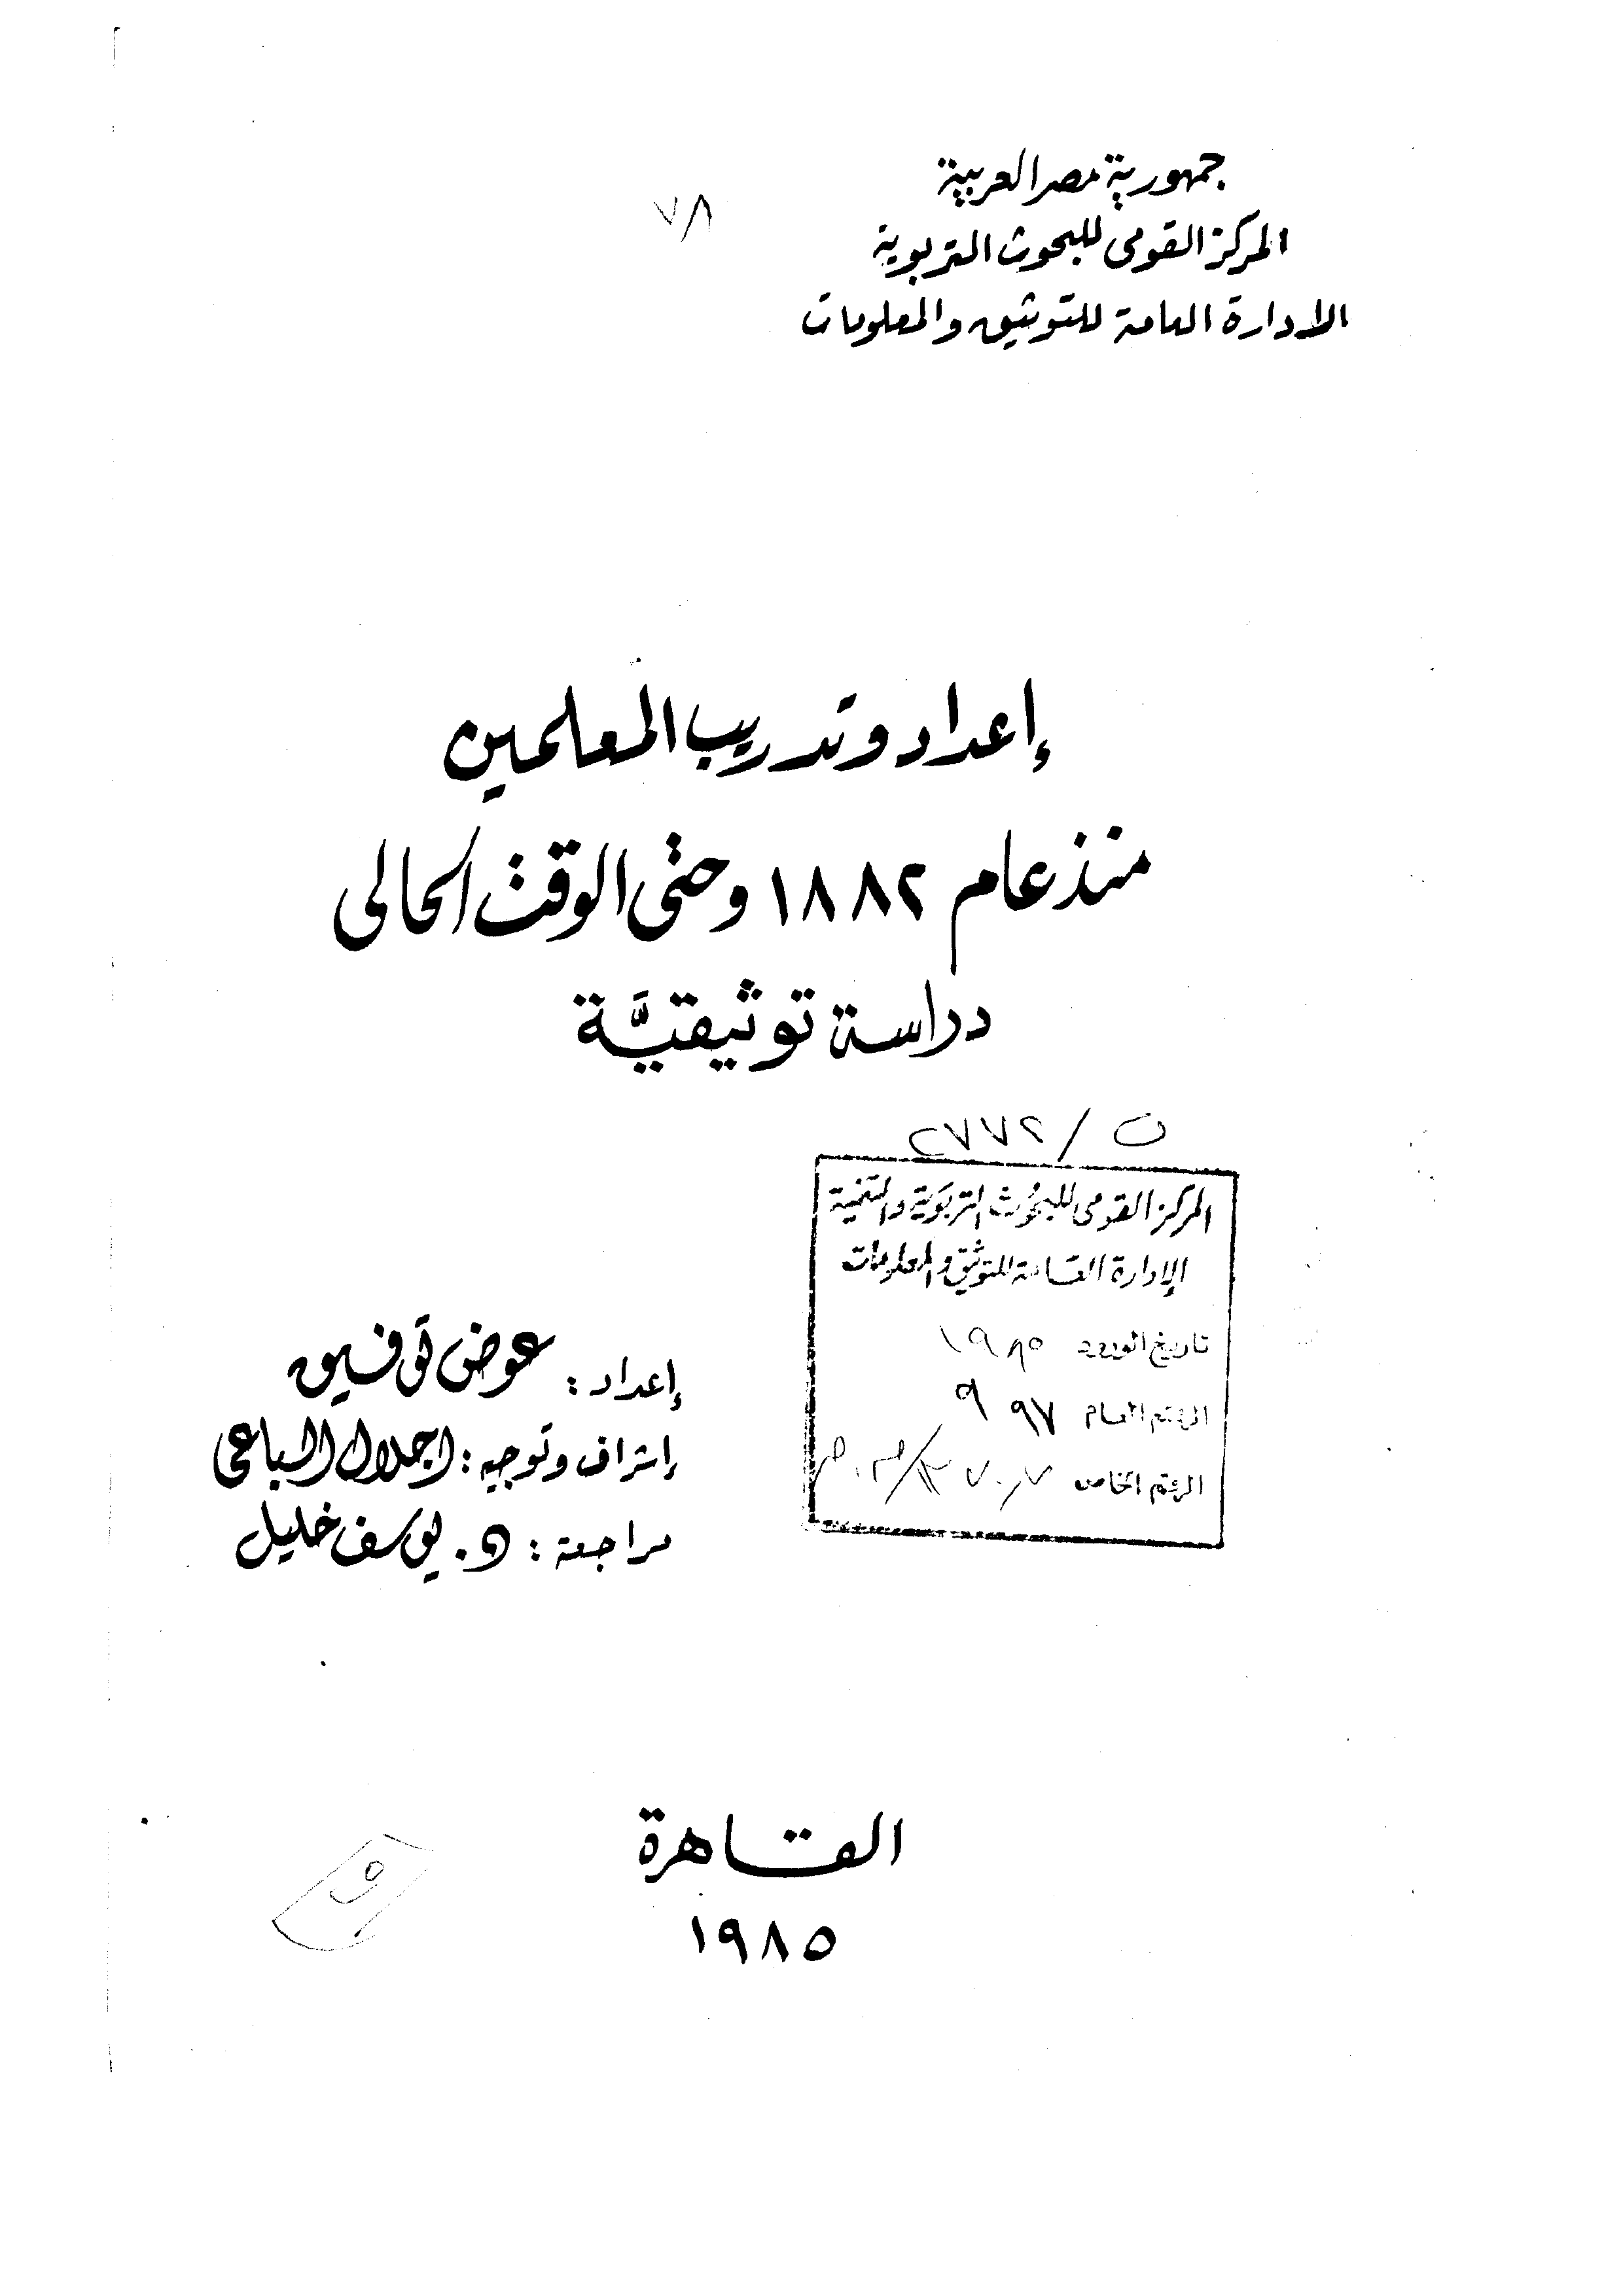 جمهورية مصر العربية
٧٨
المركز القومى للبحوث التربوية
الادارة العامة للتوثيق والمعلومات
إعداد وتدريب المعلمين
منذ عام ١٨٨٢ وحتى الوقت الحالى
دراسة توثيقيَّة
ن / ٢٧٧٢
المركز القومى للبحوث التربوية والتنمية
الإدارة العامة للتوثيق والمعلومات
تاريخ الورود ١٩٨٥
الرقم العام ٩٩٧
الرقم الخاص
إعداد : عوض توفيق
إشراف وتوجيه : اجلال السباعى
مراجعة : د. يوسف خليل
القاهرة
١٩٨٥